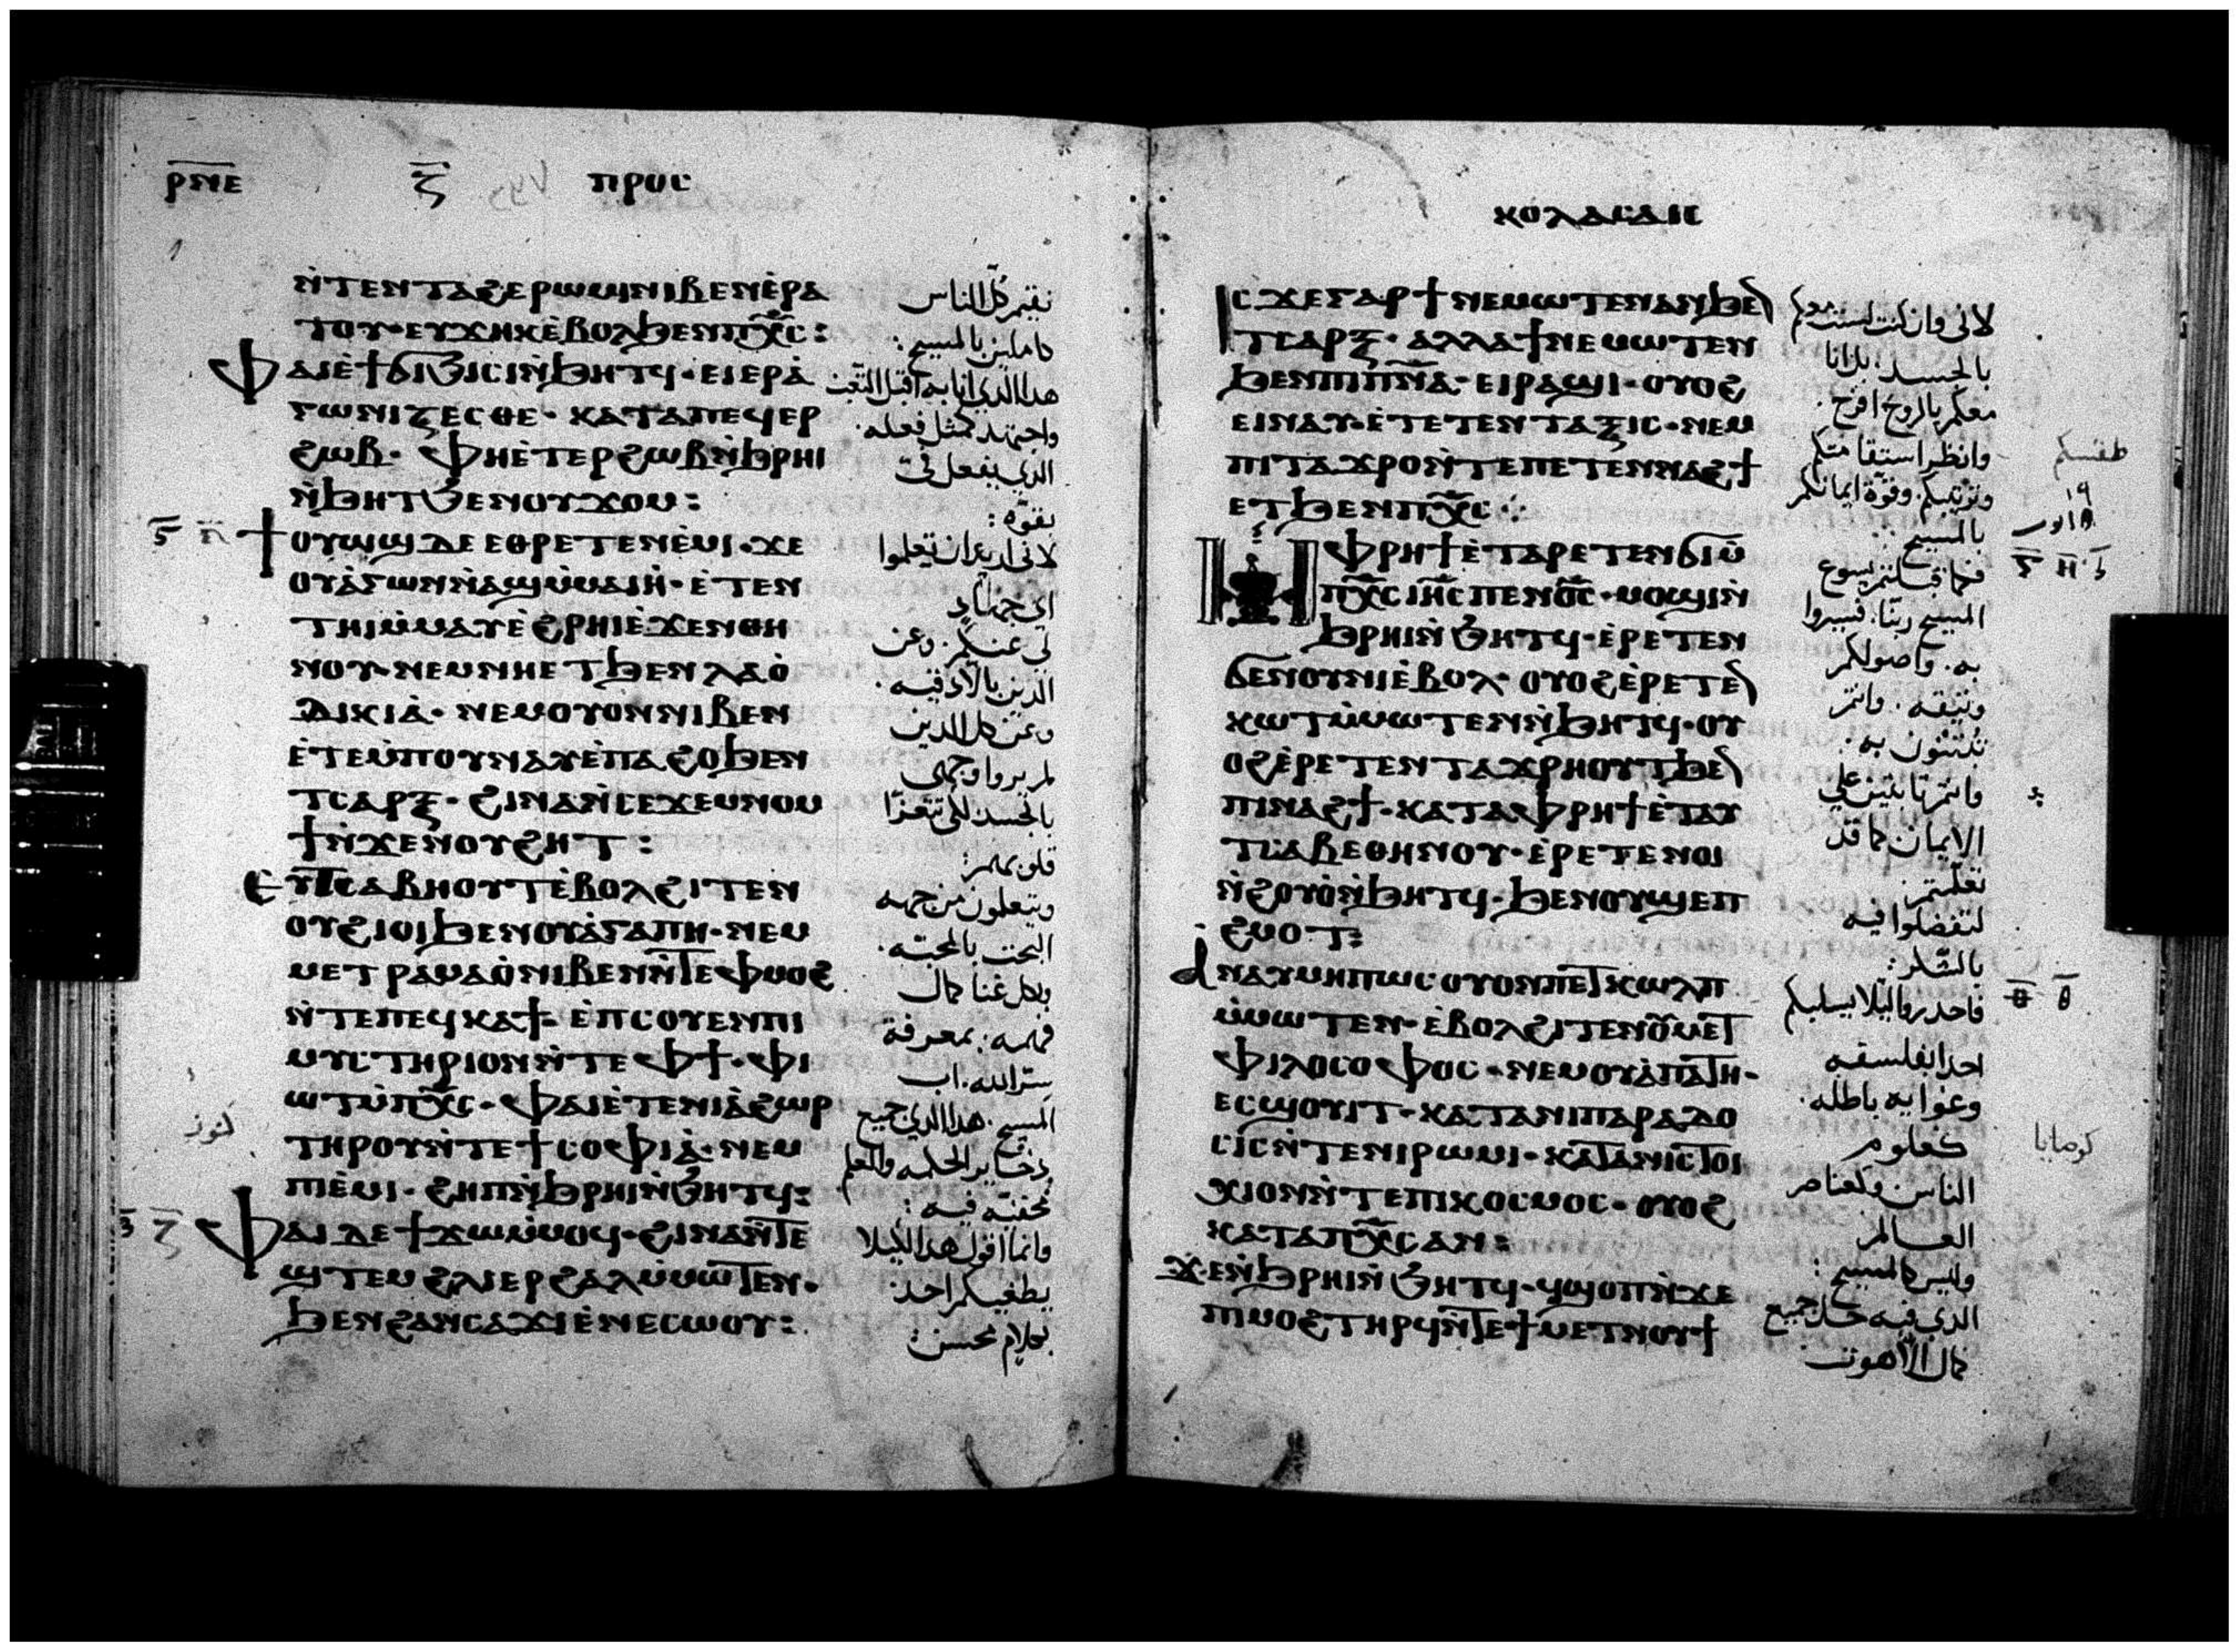 ⲣⲛⲉ ⲍ ⲡⲣⲟⲥ
ⲛ̀ⲧⲉⲛⲧⲁϩⲉⲣⲱⲙⲓⲛⲓⲃⲉⲛⲉ̀ⲣⲁ
ⲧⲟⲩ·ⲉⲩϫⲏⲕⲉ̀ⲃⲟⲗϧⲉⲛⲡⲭ̅ⲥ̅:
ⲫⲁⲓⲉ̀ϯϭⲓϧⲓⲥⲓⲛ̀ϧⲏⲧϥ·ⲉⲓⲉⲣⲁ̀
ⲅⲱⲛⲓⲍⲉⲥⲑⲉ·ⲕⲁⲧⲁⲡⲉϥⲉⲣ
ϩⲱⲃ·ⲫⲏⲉ̀ⲧⲉⲣϩⲱⲃⲛ̀ϧⲣⲏⲓ
ⲛ̀ϧⲏⲧϧⲉⲛⲟⲩϫⲟⲙ:
ϯⲟⲩⲱϣⲇⲉⲉⲑⲣⲉⲧⲉⲛⲉ̀ⲙⲓ·ϫⲉ
ⲟⲩⲁ̀ⲅⲱⲛⲛ̀ⲁϣⲙ̀ⲙⲁⲓⲏ̀·ⲉ̀ⲧⲉⲛ
ⲧⲏⲓⲙ̀ⲙⲁⲩⲉ̀ϩⲣⲏⲓⲉ̀ϫⲉⲛⲑⲏ
ⲛⲟⲩ·ⲛⲉⲙⲛⲏⲉⲧϧⲉⲛⲗⲁⲟ̀
ⲇⲓⲕⲓⲁ̀·ⲛⲉⲙⲟⲩⲟⲛⲛⲓⲃⲉⲛ
ⲉ̀ⲧⲉⲙ̀ⲡⲟⲩⲛⲁⲩⲉ̀ⲡⲁϩⲟϧⲉⲛ
ⲧⲥⲁⲣⲝ·ϩⲓⲛⲁⲛ̀ⲥⲉϫⲉⲙⲛⲟⲙ
ϯⲛ̀ϫⲉⲛⲟⲩϩⲏⲧ:
ⲉⲩⲧⲥⲁⲃⲏⲟⲩⲧⲉ̀ⲃⲟⲗϩⲓⲧⲉⲛ
ⲟⲩϩⲓⲟⲓϧⲉⲛⲟⲩⲁ̀ⲅⲁⲡⲏ·ⲛⲉⲙ
ⲙⲉⲧⲣⲁⲙⲁⲟ̀ⲛⲓⲃⲉⲛⲛ̀ⲧⲉⲫⲙⲟϩ
ⲛ̀ⲧⲉⲡⲉϥⲕⲁϯ·ⲉ̀ⲡⲥⲟⲩⲉⲛⲡⲓ
ⲙⲩⲥⲧⲏⲣⲓⲟⲛⲛ̀ⲧⲉⲫϯ·ⲫⲓ
ⲱⲧⲙ̀ⲡⲭ̅ⲥ̅·ⲫⲁⲓⲉ̀ⲧⲉⲛⲓⲁ̀ϩⲱⲣ
ⲧⲏⲣⲟⲩⲛ̀ⲧⲉϯⲥⲟⲫⲓⲁ̀·ⲛⲉⲙ
ⲡⲓⲉ̀ⲙⲓ·ϩⲏⲡⲛ̀ϧⲣⲏⲓⲛ̀ϧⲏⲧϥ:
ⲫⲁⲓⲇⲉϯϫⲱⲙ̀ⲙⲟϥ·ϩⲓⲛⲁⲛ̀ⲧⲉ
ϣⲧⲉⲙϩⲗⲓⲉⲣϩⲁⲗⲙ̀ⲙⲱⲧⲉⲛ·
ϧⲉⲛϩⲁⲛⲥⲁϫⲓⲉ̀ⲛⲉⲥⲱⲟⲩ:
نقيم كل الناس
كاملين بالمسيح:
هذا الذي انا به اقبل التعب
واجتهد كمثل فعله.
الذي يفعل فيّ
بقوّة:
لاني اريد ان تعلموا
اي جهاد
لي عنكم. وعن
الذين بالادقيه.
وعن كل الذين
لم يروا وجهي
بالجسد لكي تتعزا
قلوبهم:
ويتعلمون من جهه
البحث بالمحبّه.
وبكل غنا كمال
فهمه. بمعرفة
سرّ الله. اب
المسيح. هذا الذي جميع
ذخاير الحكمه والعلم
كنوز
مخفيّه فيه:
وانما اقول هذا لكيلا
يطغيكم احد
بكلام محسن:
ⲕⲟⲗⲁⲥⲁⲓⲥ
ⲓⲥϫⲉⲅⲁⲣϯⲛⲉⲙⲱⲧⲉⲛⲁⲛϧⲉⲛ
ⲧⲥⲁⲣⲝ·ⲁⲗⲗⲁϯⲛⲉⲙⲱⲧⲉⲛ
ϧⲉⲛⲡⲓⲡⲛ̅ⲁ̅·ⲉⲓⲣⲁϣⲓ·ⲟⲩⲟϩ
ⲉⲓⲛⲁⲩ·ⲉ̀ⲧⲉⲧⲉⲛⲧⲁⲝⲓⲥ·ⲛⲉⲙ
ⲡⲓⲧⲁϫⲣⲟⲛ̀ⲧⲉⲡⲉⲧⲉⲛⲛⲁϩϯ
ⲉⲧϧⲉⲛⲡⲭ̅ⲥ̅:
ⲙ̀ⲫⲣⲏϯⲉ̀ⲧⲁⲣⲉⲧⲉⲛϭⲓⲙ̀
ⲡⲭ̅ⲥ̅ⲓⲏ̅ⲥ̅ⲡⲉⲛⲟ̅ⲥ̅·ⲙⲟϣⲓⲛ̀
ϧⲣⲏⲓⲛ̀ϧⲏⲧϥ·ⲉ̀ⲣⲉⲧⲉⲛ
ϭⲉⲛⲟⲩⲛⲓⲉ̀ⲃⲟⲗ·ⲟⲩⲟϩⲉ̀ⲣⲉⲧⲉⲛ
ⲕⲱⲧⲙ̀ⲙⲱⲧⲉⲛⲛ̀ϧⲏⲧϥ·ⲟⲩ
ⲟϩⲉ̀ⲣⲉⲧⲉⲛⲧⲁϫⲣⲏⲟⲩⲧϧⲉⲛ
ⲡⲓⲛⲁϩϯ·ⲕⲁⲧⲁⲫⲣⲏϯⲉ̀ⲧⲁⲩ
ⲧⲥⲁⲃⲉⲑⲏⲛⲟⲩ·ⲉ̀ⲣⲉⲧⲉⲛⲟⲓ
ⲛ̀ϩⲟⲩⲟ̀ⲛ̀ϧⲏⲧϥ·ϧⲉⲛⲟⲩϣⲉⲡ
ϩⲙⲟⲧ:
ⲁⲛⲁⲩⲙⲏⲡⲱⲥⲟⲩⲟⲛⲡⲉⲧⲕⲱⲗⲡ
ⲙ̀ⲙⲱⲧⲉⲛ·ⲉ̀ⲃⲟⲗϩⲓⲧⲉⲛⲟⲩⲙⲉⲧ
ⲫⲓⲗⲟⲥⲟⲫⲟⲥ·ⲛⲉⲙⲟⲩⲁ̀ⲡⲁⲧⲏ·
ⲉⲥϣⲟⲩⲓⲧ·ⲕⲁⲧⲁⲛⲓⲡⲁⲣⲁⲇⲟ
ⲥⲓⲥⲛ̀ⲧⲉⲛⲓⲣⲱⲙⲓ·ⲕⲁⲧⲁⲛⲓⲥⲧⲟⲓ
ⲭⲓⲟⲛⲛ̀ⲧⲉⲡⲓⲕⲟⲥⲙⲟⲥ·ⲟⲩⲟϩ
ⲕⲁⲧⲁⲡⲭ̅ⲥ̅ⲁⲛ:
ϫⲉⲛ̀ϧⲣⲏⲓⲛ̀ϧⲏⲧϥ·ϥϣⲟⲡⲛ̀ϫⲉ
ⲡⲓⲙⲟϩⲧⲏⲣϥⲛ̀ⲧⲉϯⲙⲉⲧⲛⲟⲩϯ
لاني وان كنت لست معكم
بالجسد. بل انا
معكم بالروح افرح.
وانظر استقامتكم
طقسكم
وترتيبكم. وقوّة ايمانكم
بالمسيح:
فكما قبلتم يسوع
المسيح ربّنا. فسيروا
به. واصولكم
وثيقه. وانتم
تبتنون به.
وانتم ثابتين علي
الايمان كما قد
تعلمتم.
لتفضلوا فيه
بالشكر:
فاحذروا ليلا يسلبكم
احد ابفلسفه
وغوايه باطله.
كعلوم
كوصايا
الناس وكعناصر
العالم
وليس كالمسيح:
الذي فيه حل جميع
كمال اللاهوت